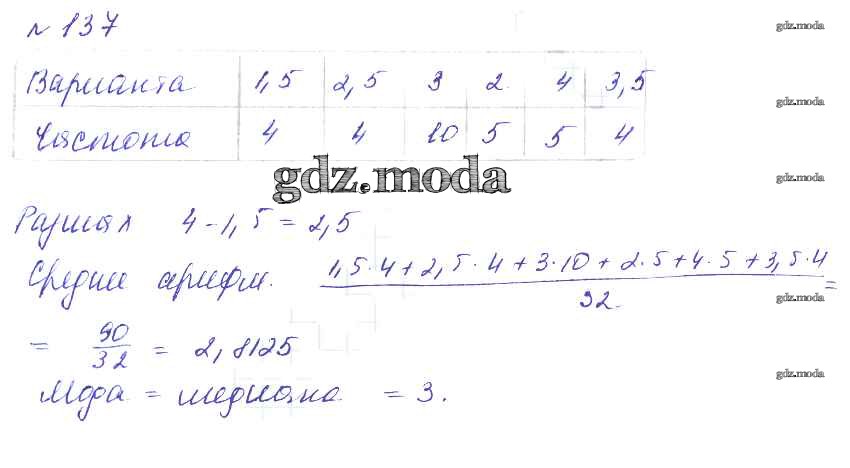 № 137
gdz.moda
Варианта 1,5 2,5 3 2 4 3,5
gdz.moda
Частота 4 4 10 5 5 4
gdz.moda
gdz.moda
Размах 4-1,5 = 2,5
gdz.moda
Средние арифм. 1,5·4+2,5·4+3·10+2·5+4·5+3,5·4
32 =
gdz.moda
= 90/32 = 2,8125
gdz.moda
Мода = медиана = 3.